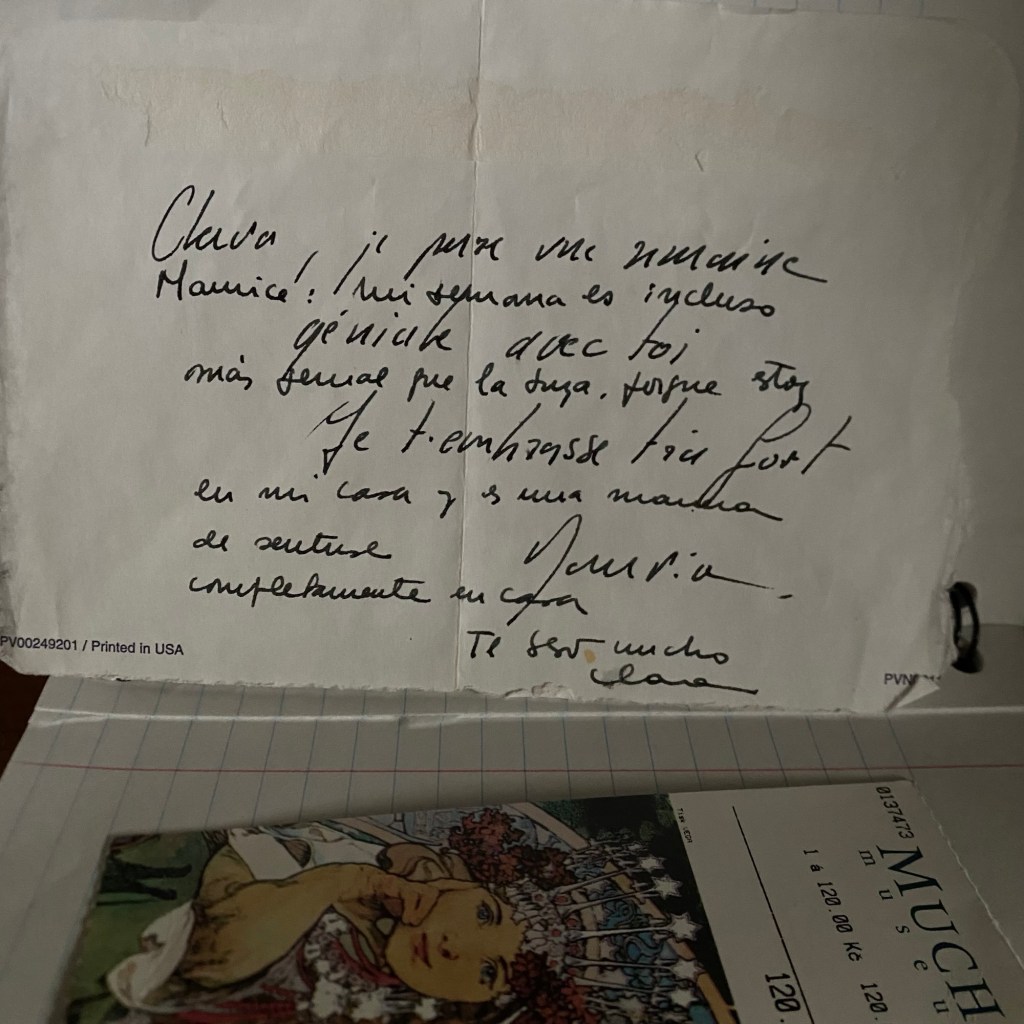 Clara, je passe une semaine
Maurice: mi semana es incluso
géniale avec toi
más genial que la tuya. porque estoy
Je t'embrasse très fort
en mi casa y es una manera
de sentirse
Maurice
completamente en casa
Te beso mucho
Clara
PV00249201 / Printed in USA
PVN
0137473
MUCH
museu
1 à 120.00 Kč 120.
120.